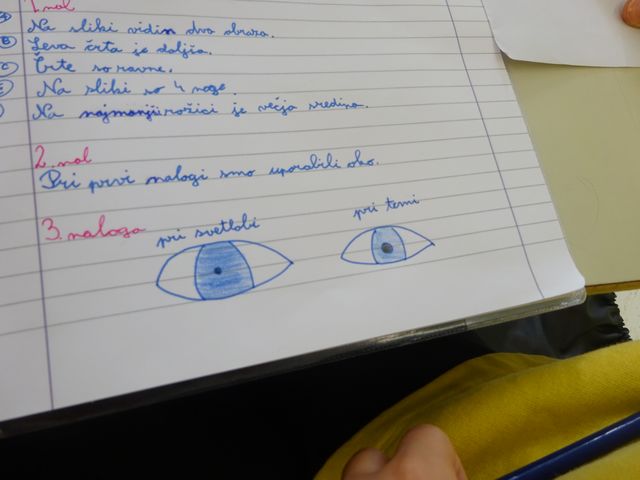 1. nal
A Na sliki vidim dva obraza.
B Leva črta je daljša.
C Črte so ravne.
Č Na sliki so 4 noge.
Na najmanjši rožici je večja sredina.
2. nal
Pri prvi nalogi smo uporabili oko.
3. naloga
pri svetlobi
pri temi